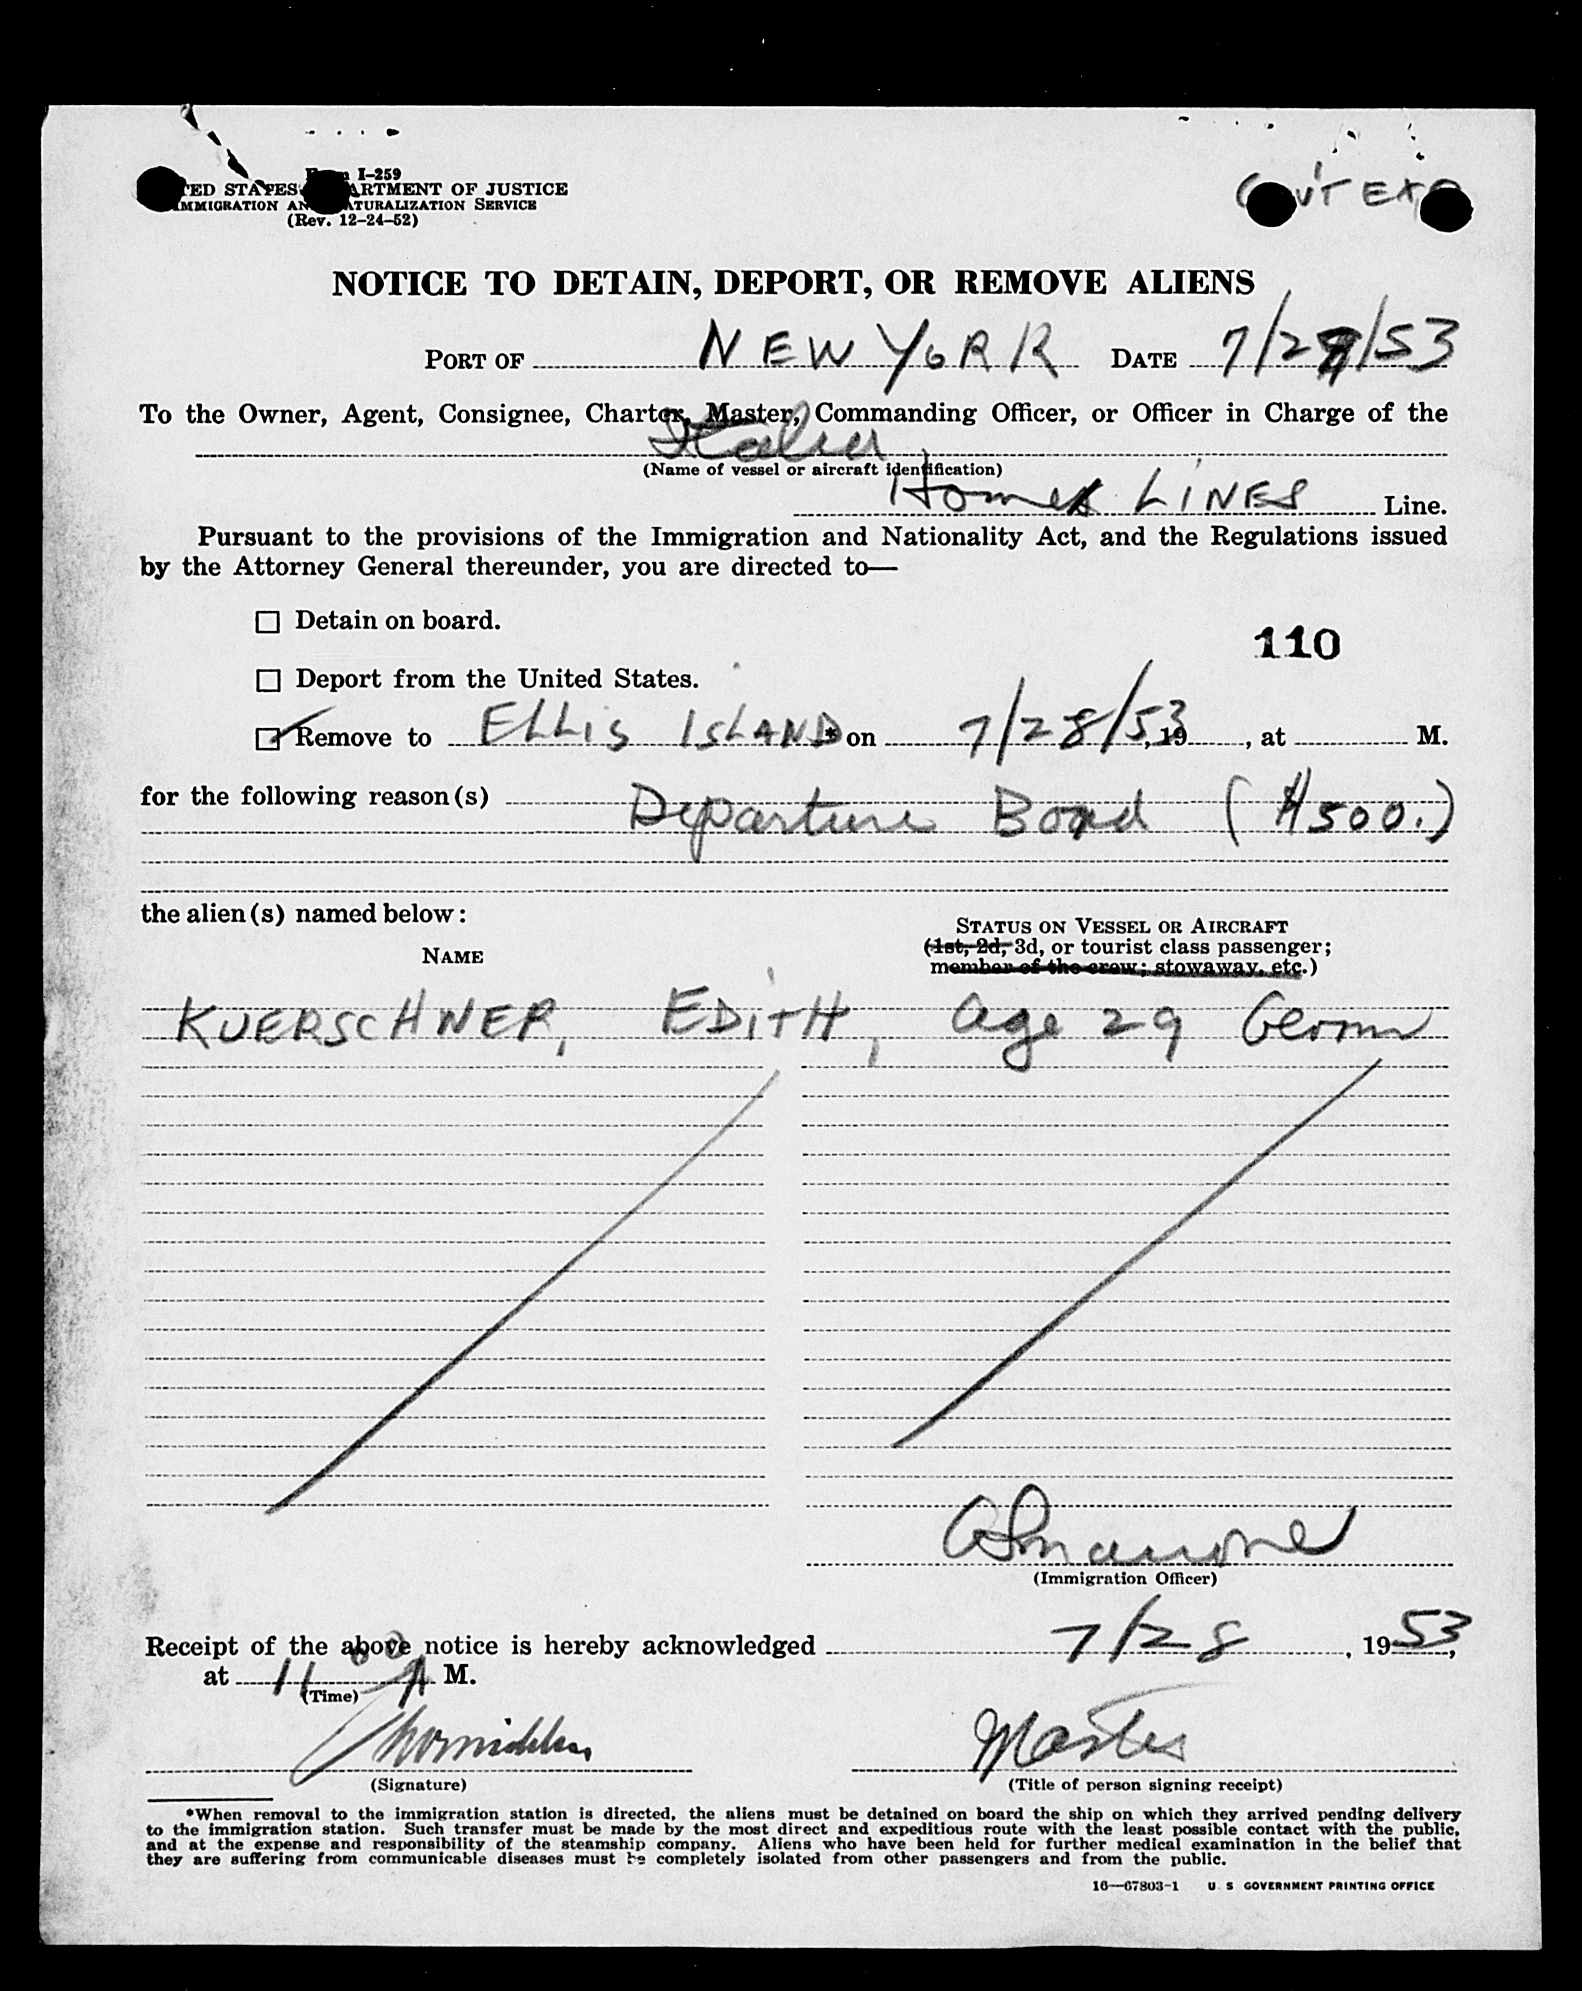 Form I-259
UNITED STATES DEPARTMENT OF JUSTICE
IMMIGRATION AND NATURALIZATION SERVICE
(Rev. 12-24-52)
GOV'T EXP
NOTICE TO DETAIN, DEPORT, OR REMOVE ALIENS
PORT OF NEW YORK DATE 7/28/53
To the Owner, Agent, Consignee, Charter, Master, Commanding Officer, or Officer in Charge of the
Italia
(Name of vessel or aircraft identification)
Home LINES Line.
Pursuant to the provisions of the Immigration and Nationality Act, and the Regulations issued
by the Attorney General thereunder, you are directed to—
Detain on board.
110
Deport from the United States.
Remove to ELLIS ISLAND* on 7/28/53, 19 , at M.
for the following reason(s) Departure Bond ($500.)
the alien(s) named below:
STATUS ON VESSEL OR AIRCRAFT
NAME (1st, 2d, 3d, or tourist class passenger;
member of the crew; stowaway, etc.)
KUERSCHNER, EDITH, age 29 German
(Immigration Officer)
Receipt of the above notice is hereby acknowledged 7/28, 1953,
at 11 00 A M.
(Time)
Master
(Signature) (Title of person signing receipt)
*When removal to the immigration station is directed, the aliens must be detained on board the ship on which they arrived pending delivery
to the immigration station. Such transfer must be made by the most direct and expeditious route with the least possible contact with the public,
and at the expense and responsibility of the steamship company. Aliens who have been held for further medical examination in the belief that
they are suffering from communicable diseases must be completely isolated from other passengers and from the public.
16—67803-1 U. S. GOVERNMENT PRINTING OFFICE